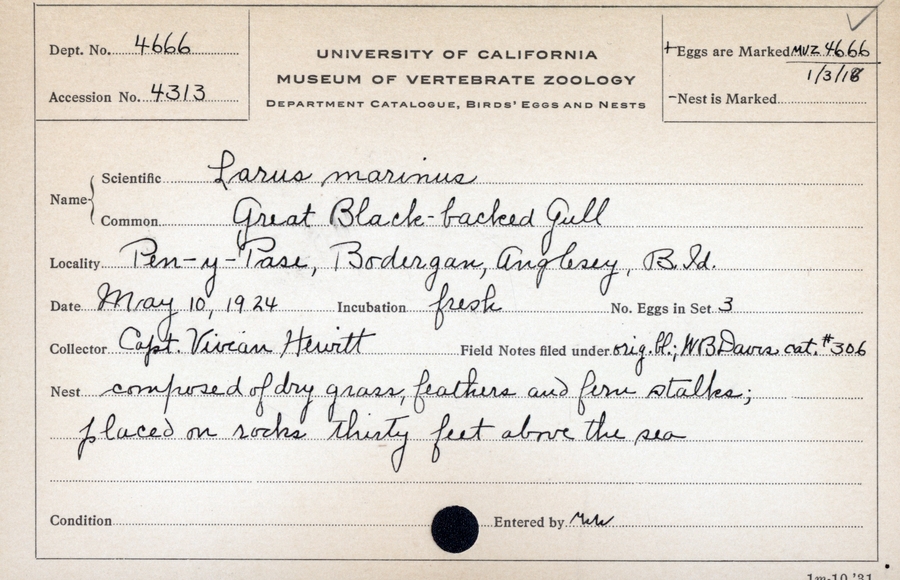 Dept. No. 4666
Accession No. 4313
UNIVERSITY OF CALIFORNIA
MUSEUM OF VERTEBRATE ZOOLOGY
DEPARTMENT CATALOGUE, BIRDS' EGGS AND NESTS
+Eggs are Marked MVZ 4666
1/3/18
-Nest is Marked
Name
Scientific Larus marinus
Common Great Black-backed Gull
Locality Pen-y-Pase, Bodergan, Anglesey, B. Id.
Date May 10, 1924 Incubation fresh No. Eggs in Set 3
Collector Capt. Vivian Hewitt Field Notes filed under orig. bl.; WB Davis cat. #306
Nest composed of dry grass, feathers and fern stalks;
placed on rocks thirty feet above the sea
Condition Entered by
1m-10,'31